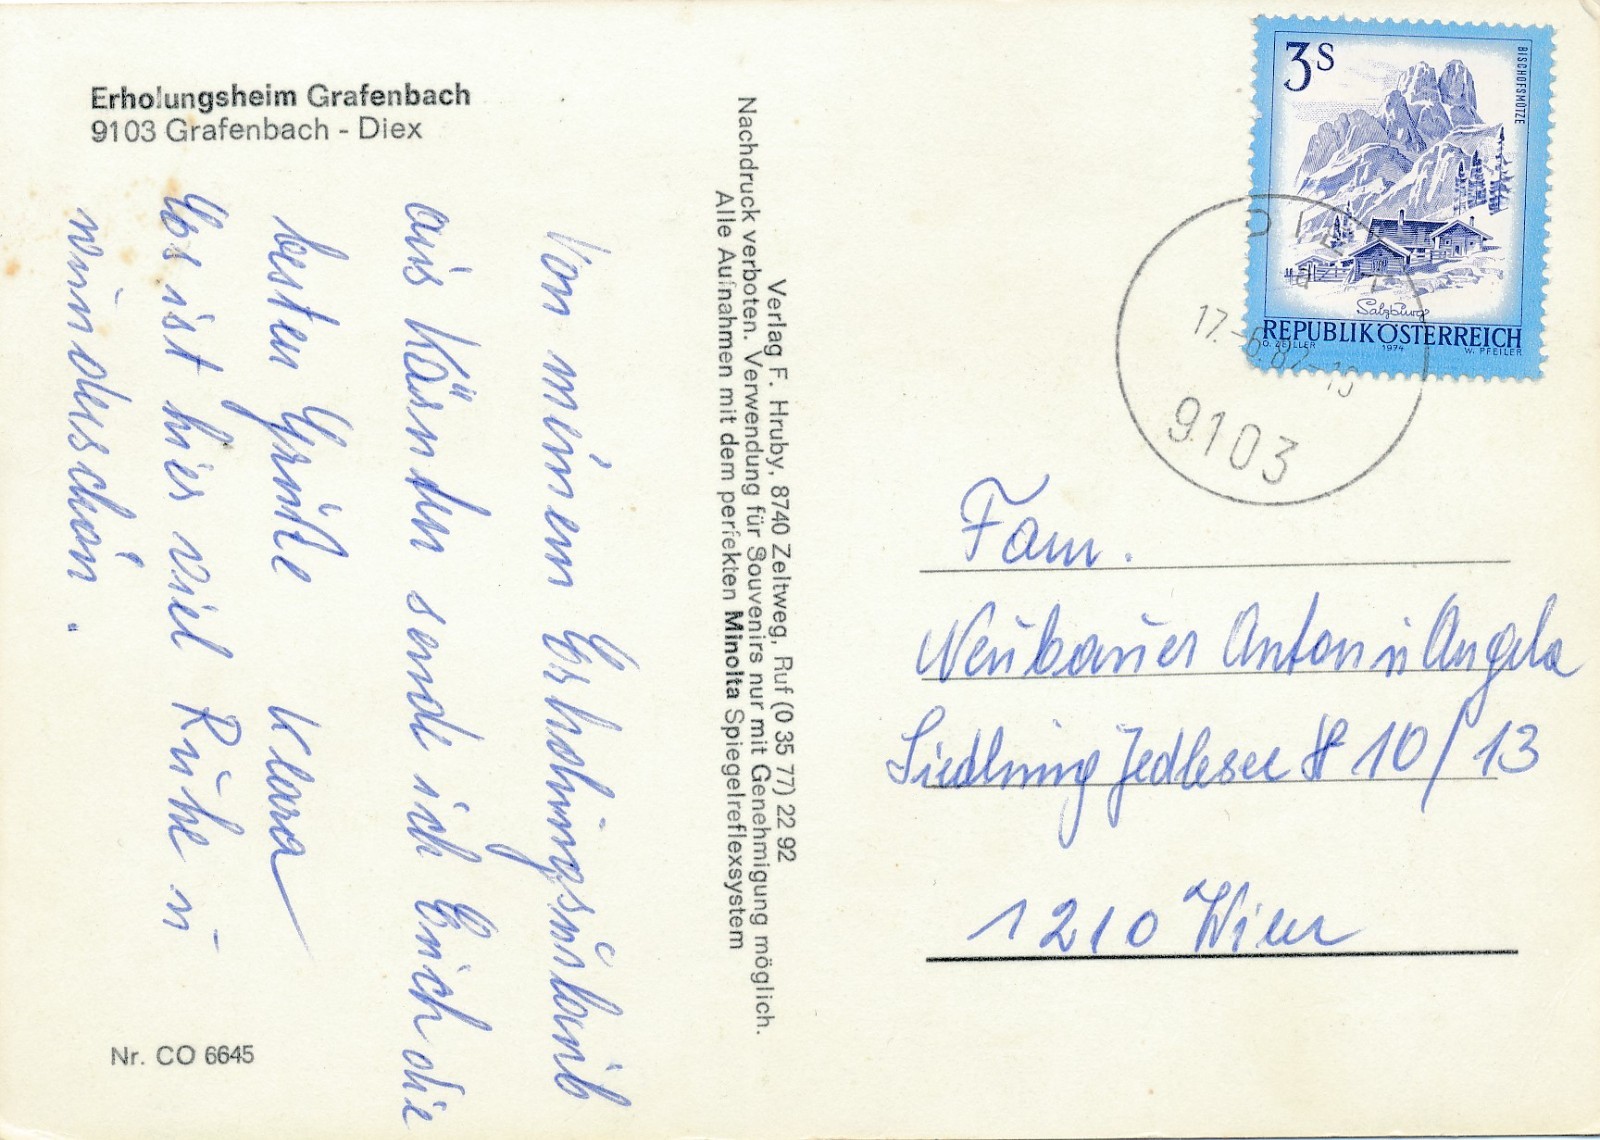 Erholungsheim Grafenbach
9103 Grafenbach - Diex
Von meinem Erholungsurlaub
aus Kärnten sende ich Euch die
besten Grüße Klara
Es ist hier viel Ruhe u
wunderschön.
Nr. CO 6645
Verlag F. Hruby, 8740 Zeltweg, Ruf (0 35 77) 22 92
Nachdruck verboten. Verwendung für Souvenirs nur mit Genehmigung möglich.
Alle Aufnahmen mit dem perfekten Minolta Spiegelreflexsystem
3 S
BISCHOFSMÜTZE
Salzburg
REPUBLIK ÖSTERREICH
O. ZEILLER 1974 W. PFEILER
DIEX
17.-6.82-
9103
Fam.
Neubauer Anton u Angela
Siedlung Jedlesee 10/13
1210 Wien